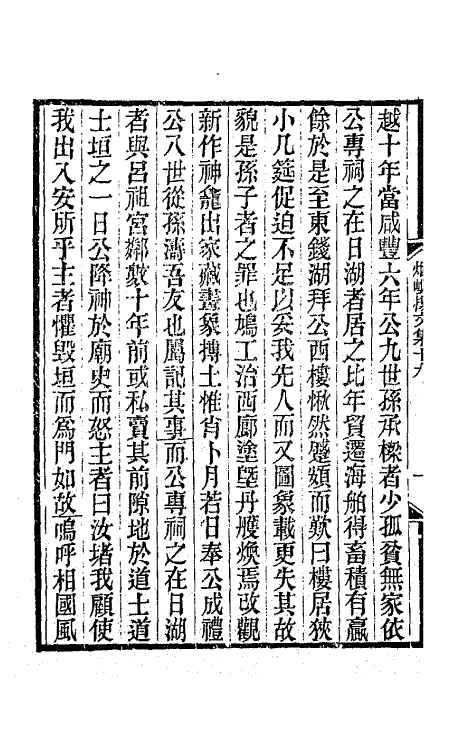 越十年當咸豐六年公九世孫承樑者少孤貧無家依
公專祠之在日湖者居之比年貿遷海舶得畜積有贏
餘於是至東錢湖拜公西樓愀然蹙頞而歎曰樓居狹
小几筵促迫不足以妥我先人而又圖象載更失其故
貌是孫子者之罪也鳩工治西廊塗塈丹雘煥焉改觀
新作神龕出家藏畫象摶土惟肖卜月若日奉公成禮
公八世從孫濤吾友也屬記其事而公專祠之在日湖
者與呂祖宮鄰數十年前或私賣其前隙地於道士道
士垣之一日公降神於廟史而怒主者曰汝堵我顧使
我出入安所乎主者懼毀垣而爲門如故嗚呼相國風
煙嶼樓文集十九
一